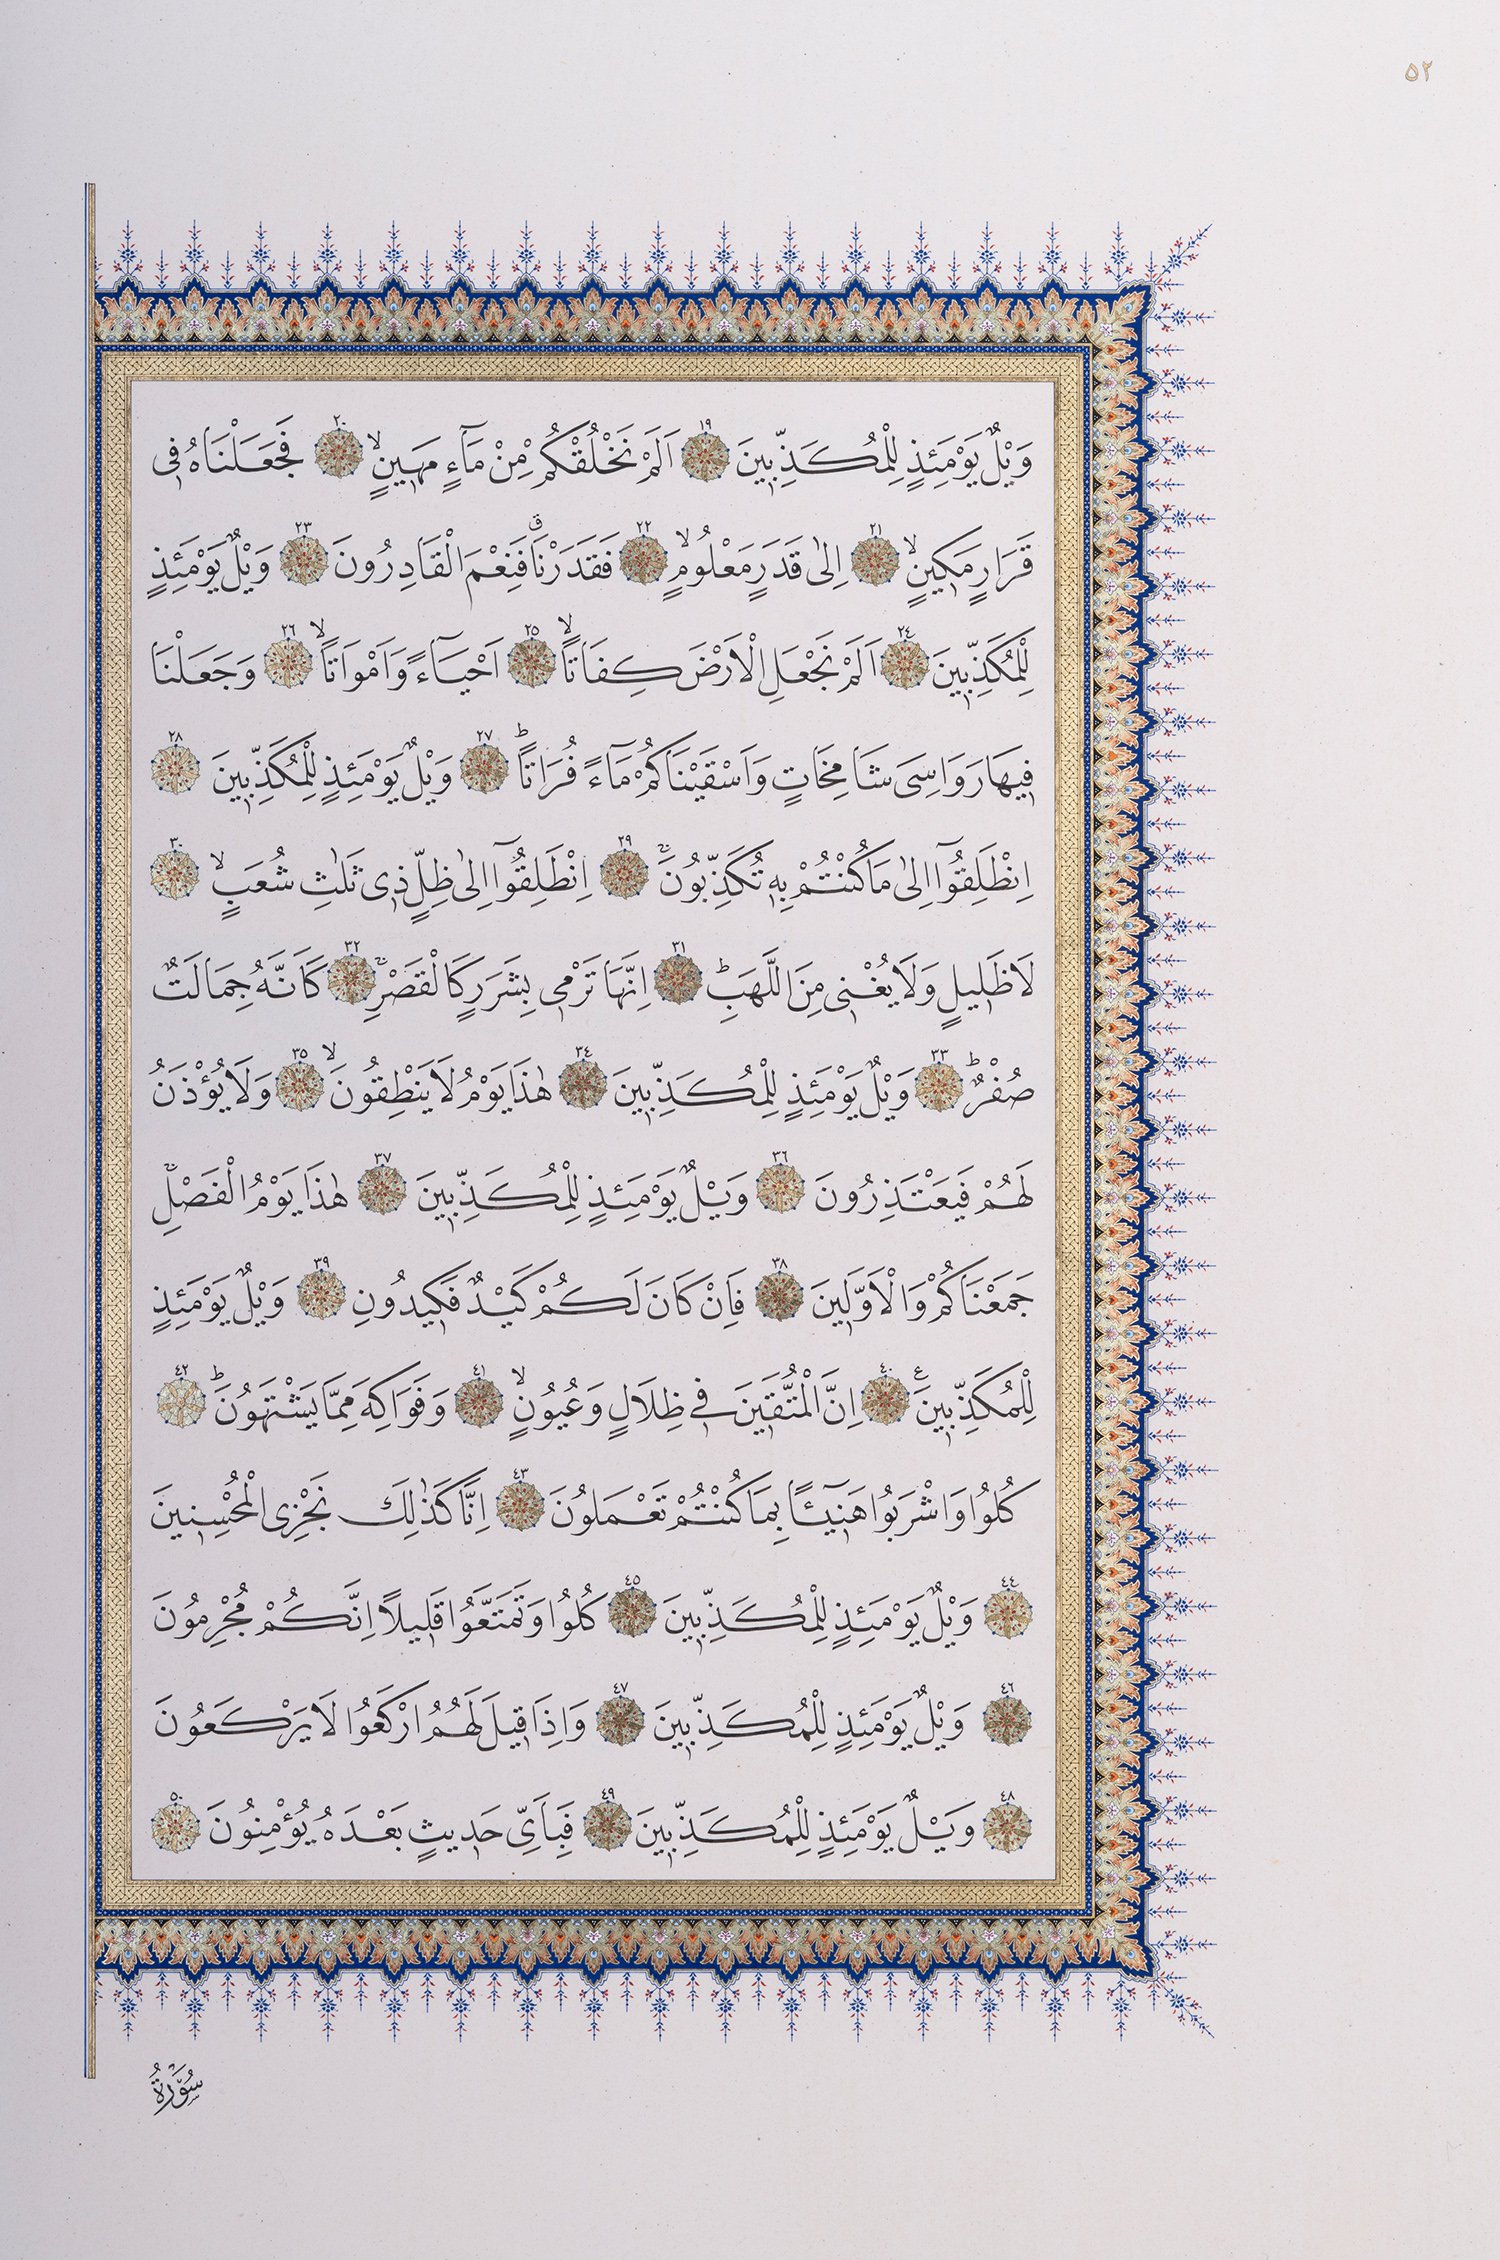 ٥٢
وَيْلٌ يَوْمَئِذٍ لِلْمُكَذِّبٖينَ ١٩ اَلَمْ نَخْلُقْكُمْ مِنْ مَٓاءٍ مَهٖينٍۙ ٢٠ فَجَعَلْنَاهُ فٖي
قَرَارٍ مَكٖينٍۙ ٢١ اِلٰى قَدَرٍ مَعْلُومٍۙ ٢٢ فَقَدَرْنَاࣗ فَنِعْمَ الْقَادِرُونَ ٢٣ وَيْلٌ يَوْمَئِذٍ
لِلْمُكَذِّبٖينَ ٢٤ اَلَمْ نَجْعَلِ الْاَرْضَ كِفَاتاًۙ ٢٥ اَحْيَٓاءً وَاَمْوَاتاًۙ ٢٦ وَجَعَلْنَا
فٖيهَا رَوَاسِيَ شَامِخَاتٍ وَاَسْقَيْنَاكُمْ مَٓاءً فُرَاتاًؕ ٢٧ وَيْلٌ يَوْمَئِذٍ لِلْمُكَذِّبٖينَ ٢٨
اِنْطَلِقُٓوا اِلٰى مَا كُنْتُمْ بِهٖ تُكَذِّبُونَۚ ٢٩ اِنْطَلِقُٓوا اِلٰى ظِلٍّ ذٖي ثَلٰثِ شُعَبٍۙ ٣٠
لَا ظَلٖيلٍ وَلَا يُغْنٖي مِنَ اللَّهَبِؕ ٣١ اِنَّهَا تَرْمٖي بِشَرَرٍ كَالْقَصْرِۚ ٣٢ كَاَنَّهُ جِمَالَتٌ
صُفْرٌؕ ٣٣ وَيْلٌ يَوْمَئِذٍ لِلْمُكَذِّبٖينَ ٣٤ هٰذَا يَوْمُ لَا يَنْطِقُونَۙ ٣٥ وَلَا يُؤْذَنُ
لَهُمْ فَيَعْتَذِرُونَ ٣٦ وَيْلٌ يَوْمَئِذٍ لِلْمُكَذِّبٖينَ ٣٧ هٰذَا يَوْمُ الْفَصْلِۚ
جَمَعْنَاكُمْ وَالْاَوَّلٖينَ ٣٨ فَاِنْ كَانَ لَكُمْ كَيْدٌ فَكٖيدُونِ ٣٩ وَيْلٌ يَوْمَئِذٍ
لِلْمُكَذِّبٖينَ ع ٤٠ اِنَّ الْمُتَّقٖينَ فٖي ظِلَالٍ وَعُيُونٍۙ ٤١ وَفَوَاكِهَ مِمَّا يَشْتَهُونَؕ ٤٢
كُلُوا وَاشْرَبُوا هَنٖيٓـٔاً بِمَا كُنْتُمْ تَعْمَلُونَ ٤٣ اِنَّا كَذٰلِكَ نَجْزِي الْمُحْسِنٖينَ
٤٤ وَيْلٌ يَوْمَئِذٍ لِلْمُكَذِّبٖينَ ٤٥ كُلُوا وَتَمَتَّعُوا قَلٖيلاً اِنَّكُمْ مُجْرِمُونَ
٤٦ وَيْلٌ يَوْمَئِذٍ لِلْمُكَذِّبٖينَ ٤٧ وَاِذَا قٖيلَ لَهُمُ ارْكَعُوا لَا يَرْكَعُونَ
٤٨ وَيْلٌ يَوْمَئِذٍ لِلْمُكَذِّبٖينَ ٤٩ فَبِاَيِّ حَدٖيثٍ بَعْدَهُ يُؤْمِنُونَ ٥٠
سُورَةُ